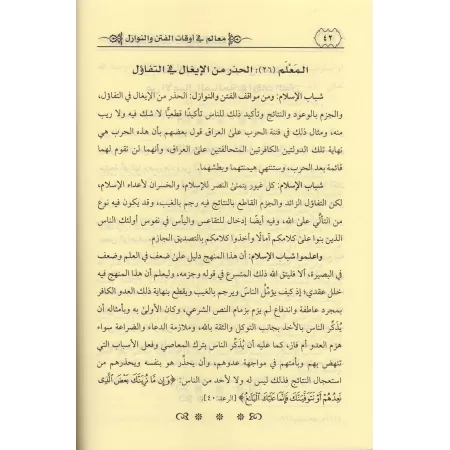 معالم في أوقات الفتن والنوازل
٤٢
المَعْلَم (٢٦): الحذر من الإيغال في التفاؤل
شباب الإسلام: ومن مواقف الفتن والنوازل: الحذر من الإيغال في التفاؤل،
والجزم بالوعود والنتائج وتأكيد ذلك للناس تأكيدًا قطعيًّا لا شك فيه ولا ريب
منه، ومثال ذلك في فتنة الحرب على العراق قول بعضهم بأن هذه الحرب هي
نهاية تلك الدولتين الكافرتين المتحالفتين على العراق، وأنهما لن تقوم لهما
قائمة بعد الحرب، وستنتهي هيمنتهما وبطشهما.
شباب الإسلام: كل غيور يتمنى النصر للإسلام، والخسران لأعداء الإسلام،
لكن التفاؤل الزائد والجزم القاطع بالنتائج فيه رجم بالغيب، وقد يكون فيه نوع
من التألِّي على الله، وفيه أيضًا إدخال للتقاعس واليأس في نفوس أولئك الناس
الذين بنوا على كلامكم آمالًا وأخذوا كلامكم بالتصديق الجازم.
واعلموا شباب الإسلام: أن هذا المنهج دليل على ضعف في العلم وضعف
في البصيرة، ألا فليتق الله ذلك المتسرع في قوله وجزمه، وليعلم أن هذا المنهج فيه
خلل عقدي؛ إذ كيف يؤمِّل الناسَ ويرجم بالغيب ويقطع بنهاية ذلك العدو الكافر
بمجرد عاطفة واندفاع لم يزم بزمام النص الشرعي، وكان الأولى به وبأمثاله أن
يُذكِّر الناس بالأخذ بجانب التوكل والثقة بالله، وملازمة الدعاء والضراعة سواء
هزم العدو أم فاز، كما عليه أن يُذكِّر الناس بترك المعاصي وفعل الأسباب التي
تنهض بهم وبأمتهم في مواجهة عدوهم، وأن يحذر هو بنفسه ويحذرهم من
استعجال النتائج فذلك ليس له ولا لأحد من الناس: ﴿وَإِن مَّا نُرِيَنَّكَ بَعْضَ الَّذِي
نَعِدُهُمْ أَوْ نَتَوَفَّيَنَّكَ فَإِنَّمَا عَلَيْكَ الْبَلَاغُ﴾ [الرعد: ٤٠].